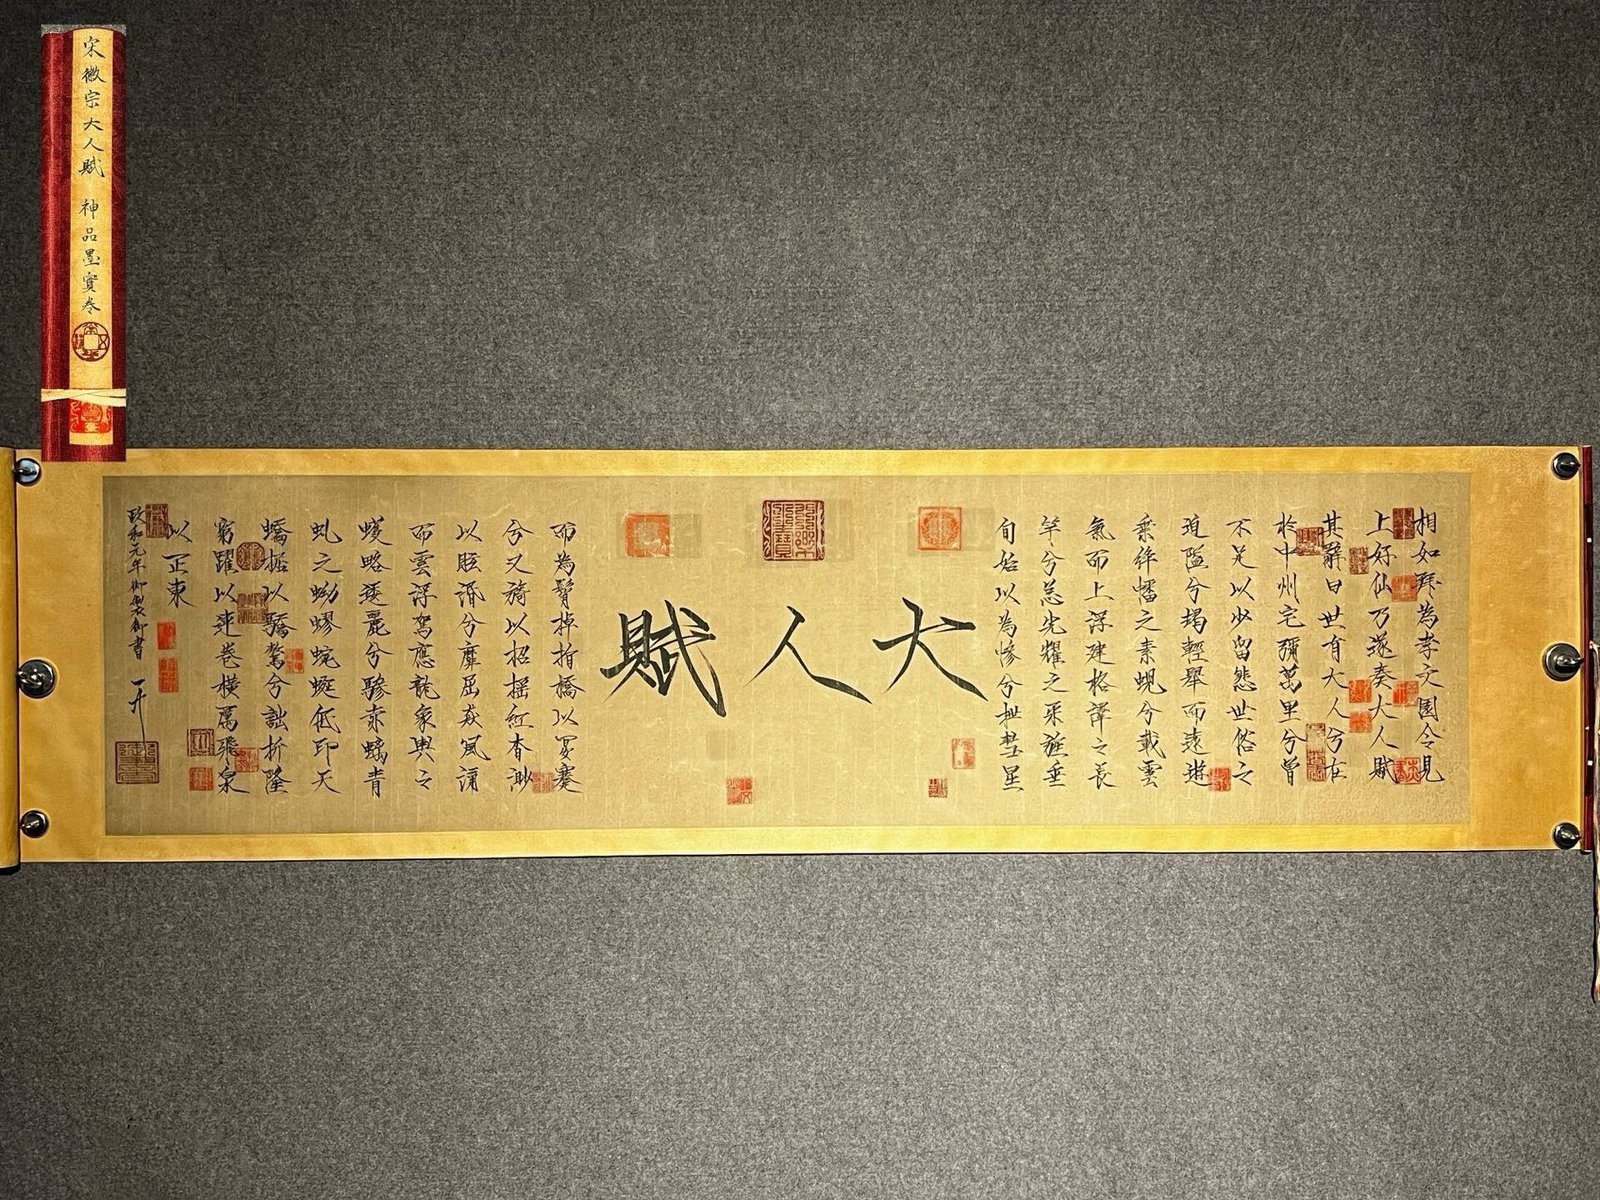 宋徽宗大人賦 神品墨寶卷
相如拜為孝文園令見
上好仙乃遂奏大人賦
其辭曰世有大人兮在
於中州宅彌萬里兮曾
不足以少留悲世俗之
迫隘兮朅輕舉而遠遊
乘絳幡之素蜺兮載雲
氣而上浮建格澤之長
竿兮總光耀之采旄垂
旬始以為幓兮抴彗星
大人賦
而為髾掉指橋以偃蹇
兮又旖以招搖紅杳渺
以眩湣兮猋風涌
而雲浮駕應龍象輿之
蠖略逶麗兮驂赤螭青
虬之蚴蟉蜿蜒低卬天
蟜据以驕驁兮詘折隆
窮躍以連卷橫厲飛泉
以正東
政和元年御製御書